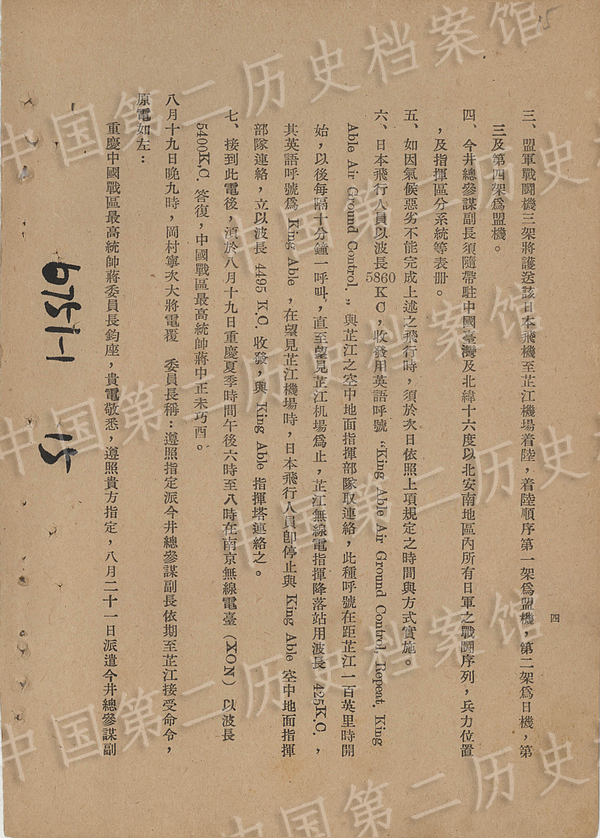 三、盟軍戰鬪機三架將護送該日本飛機至芷江機場着陸，着陸順序第一架爲盟機，第二架爲日機，第
三及第四架爲盟機。
四、今井總參謀副長須隨帶駐中國臺灣及北緯十六度以北安南地區內所有日軍之戰鬪序列，兵力位置
，及指揮區分系統等表冊。
五、如因氣候惡劣不能完成上述之飛行時，須於次日依照上項規定之時間與方式實施。
六、日本飛行人員以波長 5860 KC，收發用英語呼號 “King Able Air Ground Control, Repeat, King
Able Air Ground Control.” 與芷江之空中地面指揮部隊取連絡，此種呼號在距芷江一百英里時開
始，以後每隔十分鐘一呼叫，直至望見芷江机場爲止，芷江無線電指揮降落站用波長 425K.C.，
其英語呼號爲 King Able，在望見芷江機場時，日本飛行人員卽停止與 King Able 空中地面指揮
部隊連絡，立以波長 4495 K.C. 收發，與 King Able 指揮塔連絡之。
七、接到此電後，須於八月十九日重慶夏季時間午後六時至八時在南京無線電臺（XON）以波長
5400K.C. 答復，中國戰區最高統帥蔣中正未巧酉。
八月十九日晚九時，岡村寧次大將電覆　委員長稱：遵照指定派今井總參謀副長依期至芷江接受命令，
原電如左：
重慶中國戰區最高統帥蔣委員長鈞座，貴電敬悉，遵照貴方指定，八月二十一日派遣今井總參謀副
四
15
6751-1
15
中国第二历史档案馆
中国第二历史档案馆
中国第二历史档案馆
中国第二历史档案馆